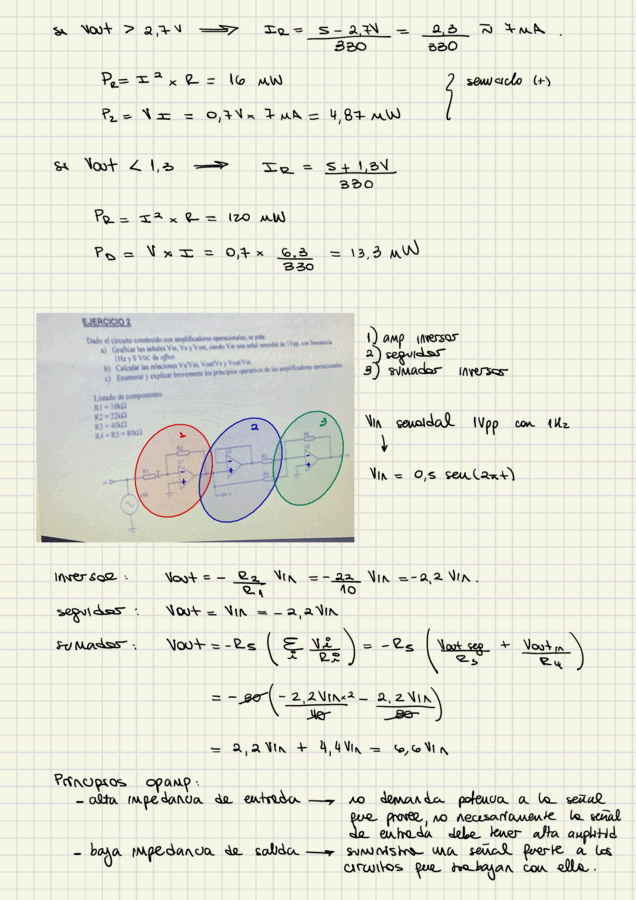 si Vout > 2,7 V ⟹ IR = (5 − 2,7V)/330 = 2,3/330 ≈ 7 mA.
PR = I² × R = 16 mW
P2 = V I = 0,7V × 7 mA = 4,87 mW
semiciclo (+)
si Vout < 1,3 ⟹ IR = (5 + 1,3V)/330
PR = I² × R = 120 mW
PD = V × I = 0,7 × 6,3/330 = 13,3 mW
EJERCICIO 2
Dado el circuito construido con amplificadores operacionales, se pide:
a) Graficar las señales Vin, Vx y Vout, siendo Vin una señal senoidal de 1Vpp, con frecuencia
1Hz y 0 VDC de offset
b) Calcular las relaciones Vx/Vin, Vout/Vx y Vout/Vin.
c) Enumerar y explicar brevemente los principios operativos de los amplificadores operacionales
Listado de componentes:
R1 = 10kΩ
R2 = 22kΩ
R3 = 40kΩ
R4 = R5 = 80kΩ
1
2
3
1) amp inversor
2) seguidor
3) sumador inversor
Vin senoidal 1Vpp con 1Hz
↓
Vin = 0,5 sen(2πt)
inversor: Vout = − R2/R1 Vin = − 22/10 Vin = −2,2 Vin.
seguidor: Vout = Vin = −2,2 Vin
sumador: Vout = −R5 ( Σi Vi/Ri ) = −R5 ( Vout seg/R3 + Vout in/R4 )
= −80 ( −2,2 Vin×2/40 − 2,2 Vin/80 )
= 2,2 Vin + 4,4 Vin = 6,6 Vin
Principios opamp:
− alta impedancia de entrada → no demanda potencia a la señal
que provee, no necesariamente la señal
de entrada debe tener alta amplitud
− baja impedancia de salida → suministra una señal fuerte a los
circuitos que trabajan con ella.